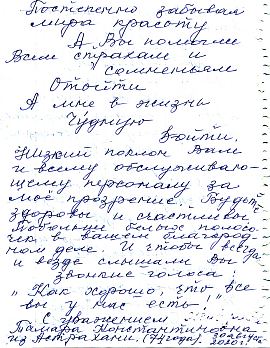 Постепенно забывая
мира красоту
А Вы помогли
Всем страхам и
сомненьям
Отойти
А мне в жизнь
Чудную
Войти.
Низкий поклон Вам
и всему обслуживаю-
щему персоналу за
моё прозрение. Будьте
здоровы и счастливы
Побольше белых полосо-
чек в вашем благород-
ном деле. И чтобы всегда
и везде слышали Вы
звонкие голоса:
"Как хорошо, что все
вы у нас есть!"
С уважением
Тамара Константиновна
из Астрахани. (74 года).